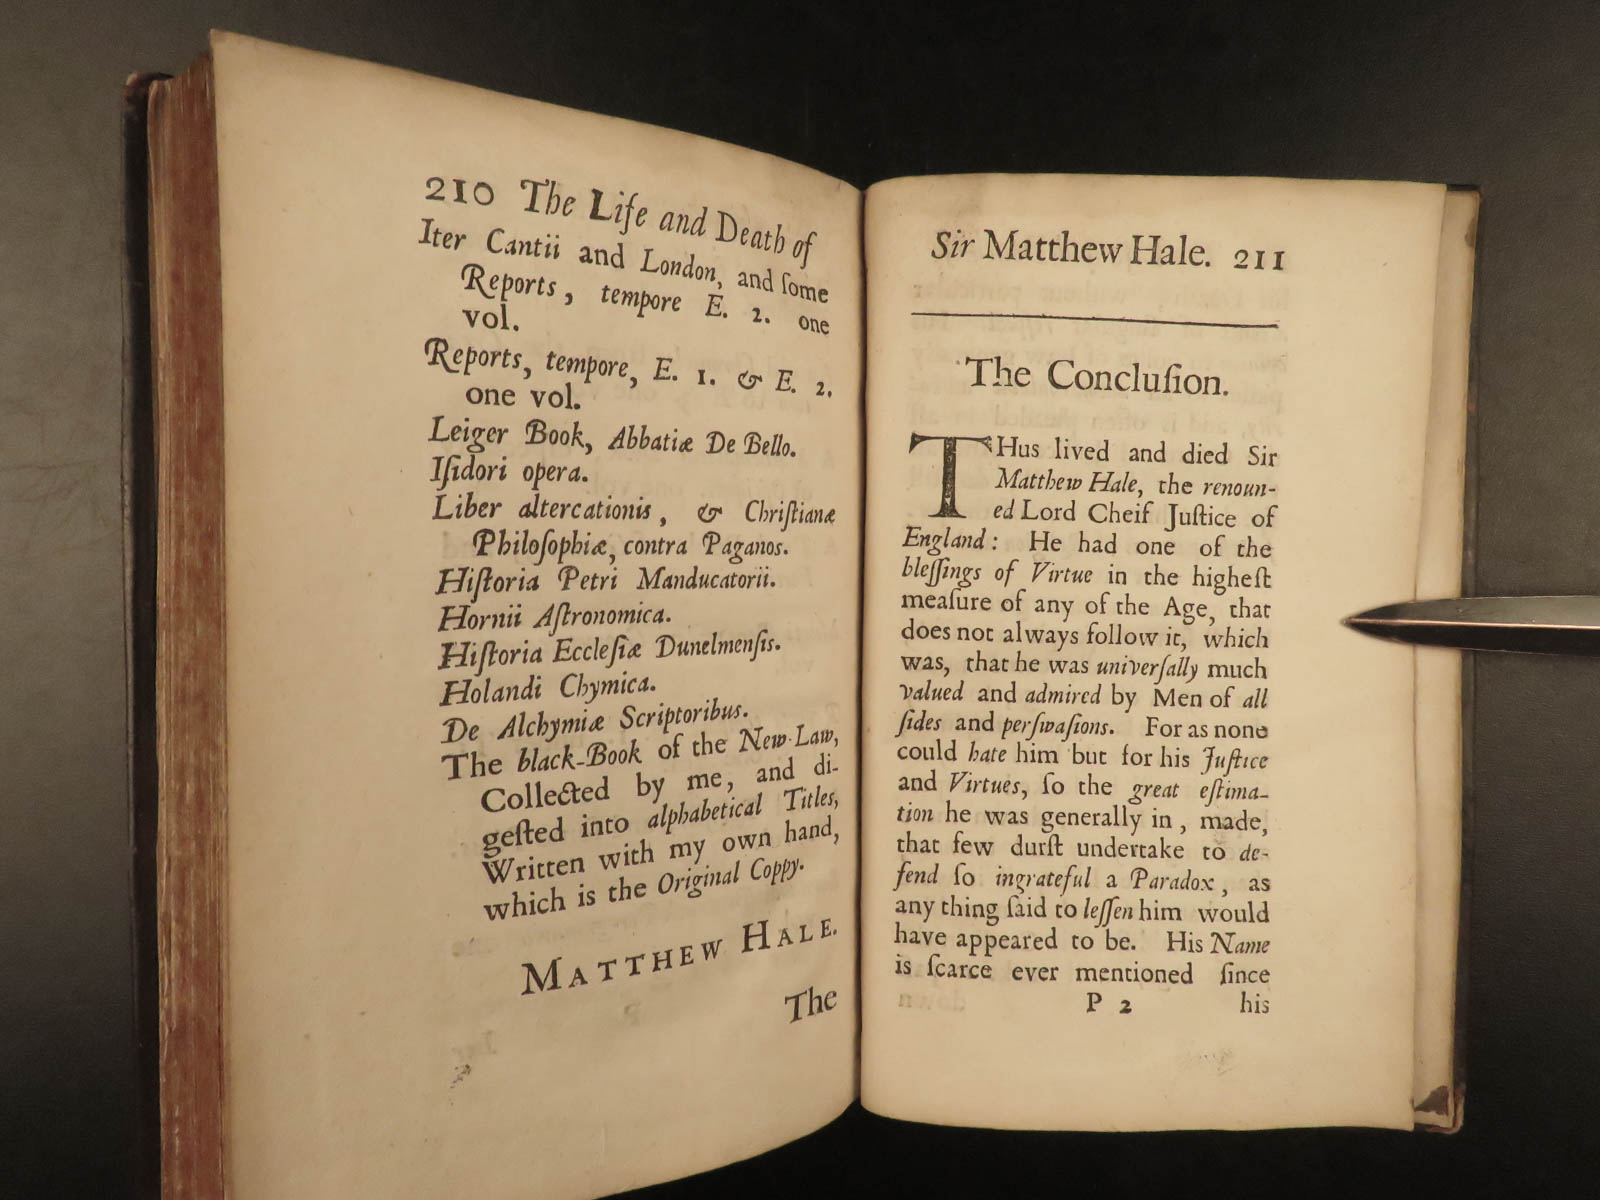 210 The Life and Death of
Iter Cantii and London, and ſome
Reports, tempore E. 2. one
vol.
Reports, tempore, E. 1. & E. 2.
one vol.
Leiger Book, Abbatiæ De Bello.
Iſidori opera.
Liber altercationis, & Chriſtianæ
Philoſophiæ, contra Paganos.
Hiſtoria Petri Manducatorii.
Hornii Aſtronomica.
Hiſtoria Eccleſiæ Dunelmenſis.
Holandi Chymica.
De Alchymiæ Scriptoribus.
The black-Book of the New-Law,
Collected by me, and di-
geſted into alphabetical Titles,
Written with my own hand,
which is the Original Coppy.
MATTHEW HALE.
The
Sir Matthew Hale. 211
The Concluſion.
THus lived and died Sir
Matthew Hale, the renoun-
ed Lord Cheif Juſtice of
England: He had one of the
bleſſings of Virtue in the higheſt
meaſure of any of the Age, that
does not always follow it, which
was, that he was univerſally much
valued and admired by Men of all
ſides and perſwaſions. For as none
could hate him but for his Juſtice
and Virtues, ſo the great eſtima-
tion he was generally in, made,
that few durſt undertake to de-
fend ſo ingrateful a Paradox, as
any thing ſaid to leſſen him would
have appeared to be. His Name
is ſcarce ever mentioned ſince
P 2 his